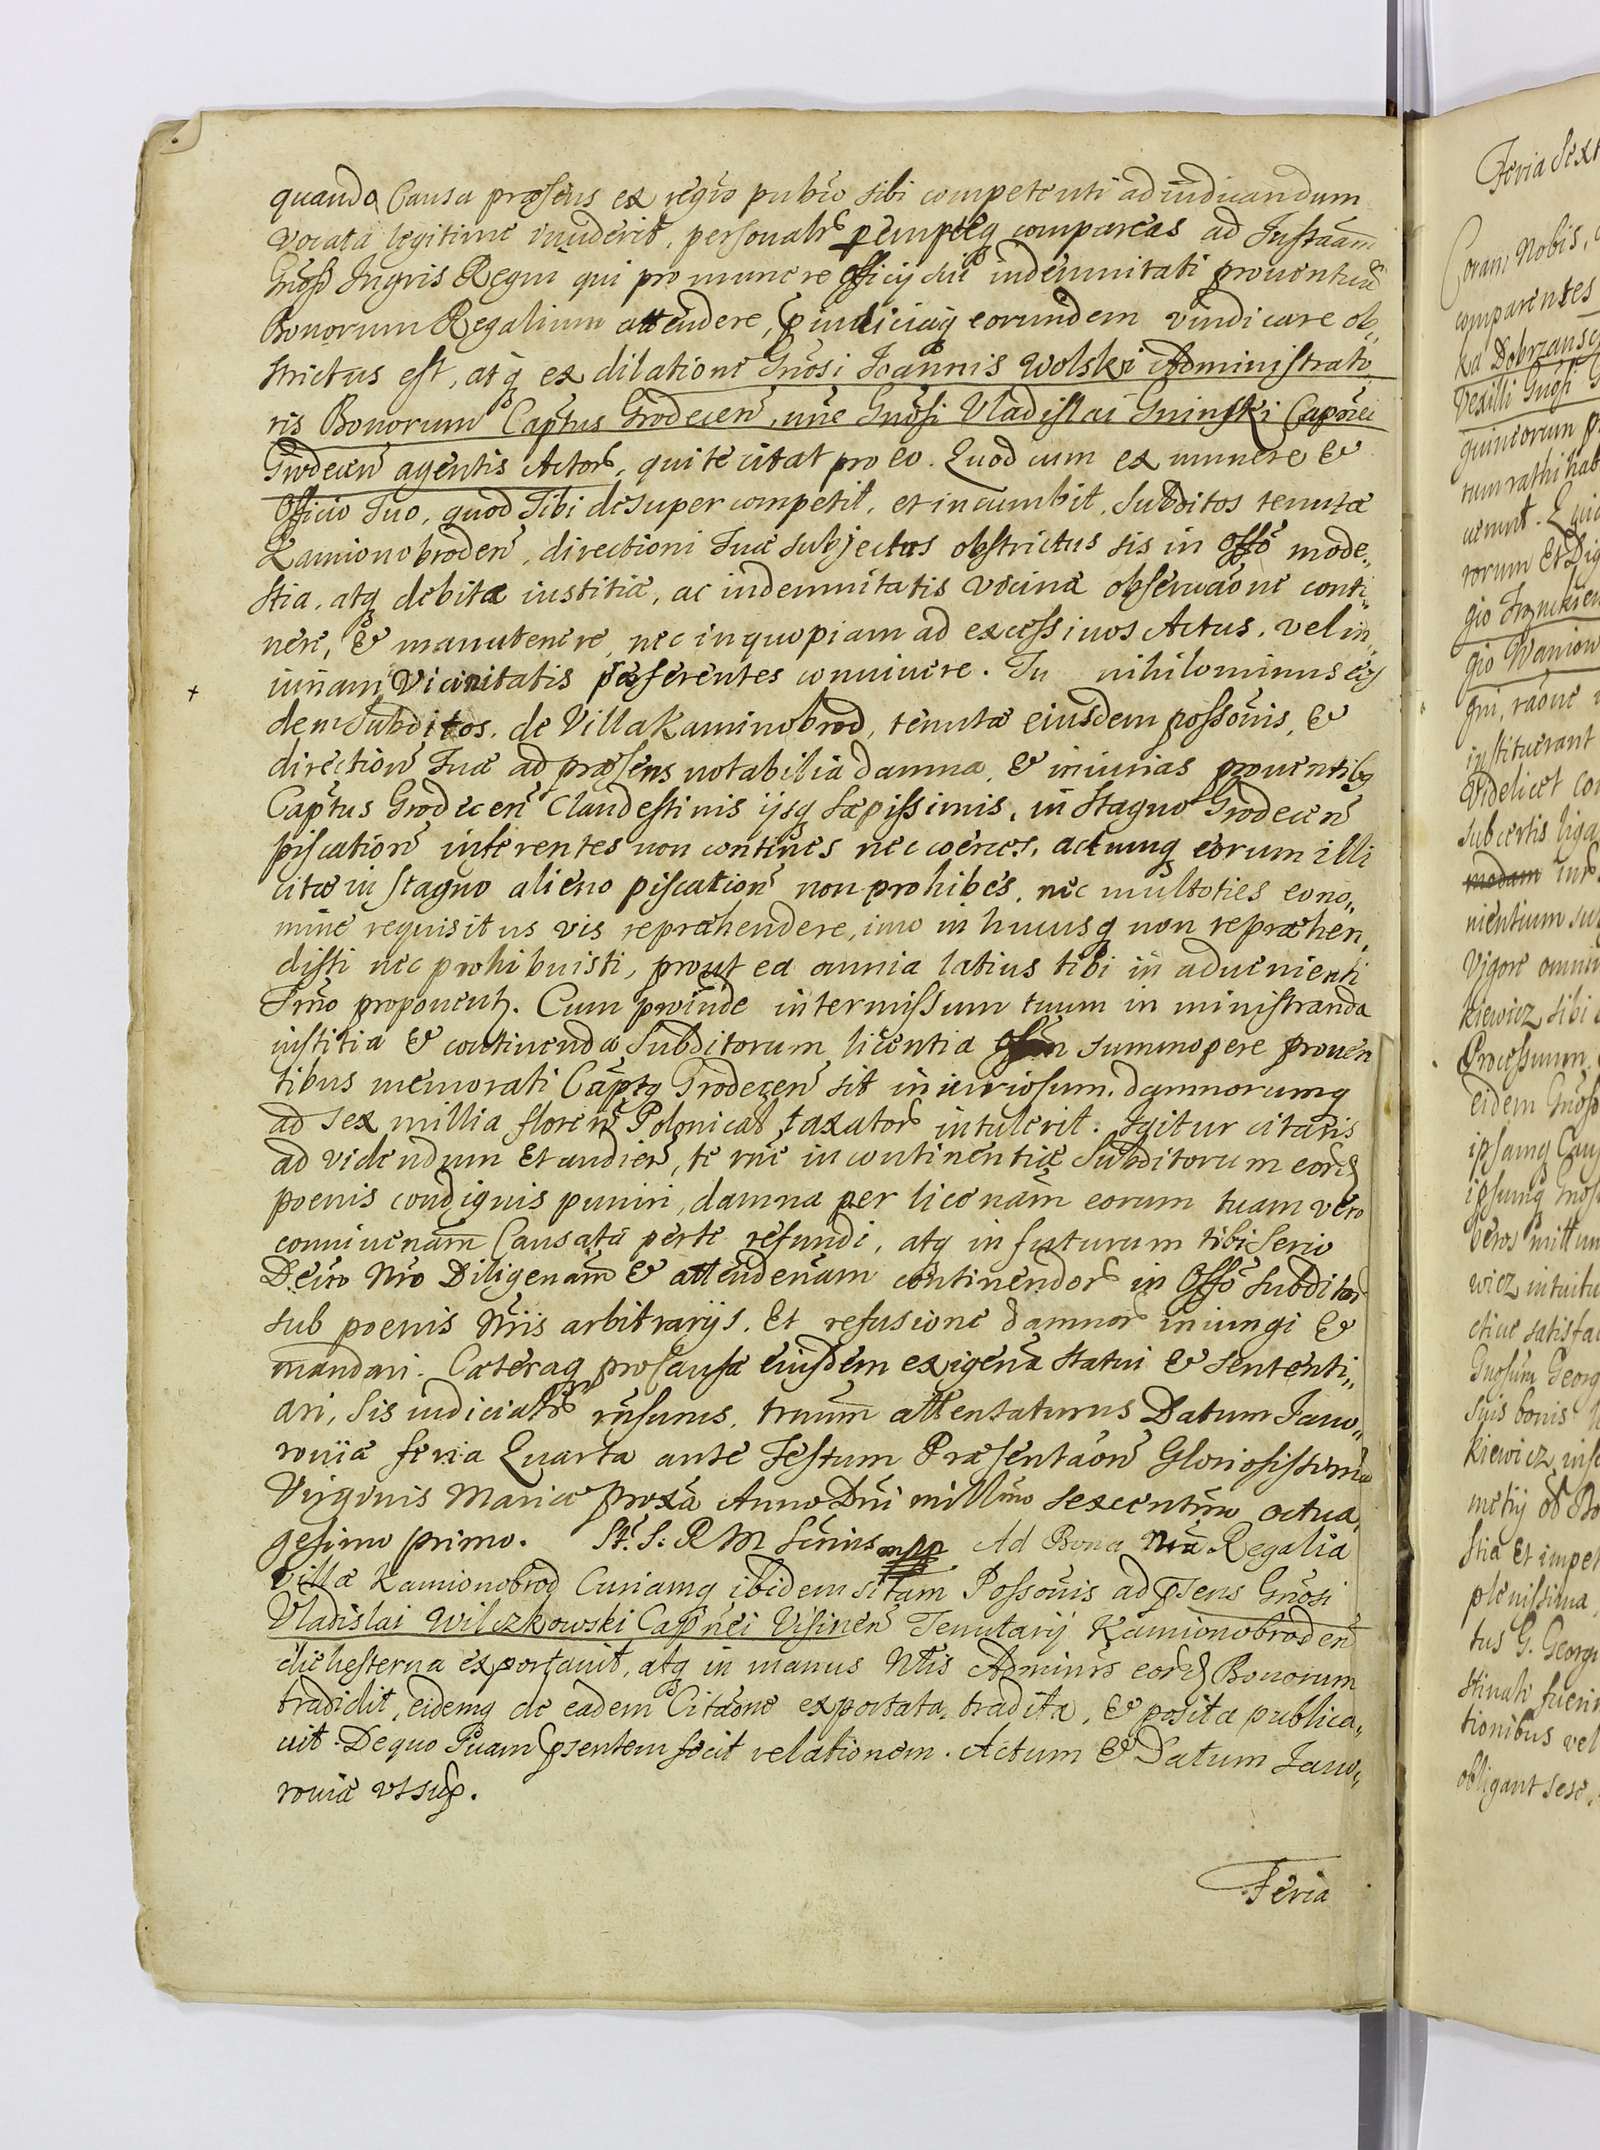 quando Causa præsens ex regro pubco sibi competenti adiudicandum
vocata legitime inciderit, personalr pemptieq compareas ad Instaam
Gnosi Ingris Regni qui pro munere officij sui indemnitati prouentuu
Bonorum Regalium attendere, Piudiciaq eorundem vindicare ob,,
strictus est, atq ex dilatione Gnosi Joannis Wolski Administrato
ris Bonorum Captus Grodecen, nne Gnosi Vladislai Gninski Capnei
Grodecen agentis Actor, qui te citat pro eo. Quod cum ex munere &
Officio Tuo, quod Tibi desuper competit, et incumbit, Subditos tenutæ
Kamionobroden, directioni Tuæ subjectus obstrictus sis in offo mode,,
stia, atq debita iustitia, ac indemnitatis vicinæ obseruaone conti,,
nere, & manutenere, nec in quopiam ad excessiuos Actus, vel in,,
iuriam Vicinitatis se referentes conniuere. Tu nihilominus eos
dem Subditos, de Villa Kaminobrod, tenutæ eiusdem possonis, &
direction Tuæ ad præsens notabilia damna, & iniurias prouentibq
Captus Grodecen Clandestinis ijsq sæpissimis, in Stagno Grodecen
piscation inferentes non contines nec coerces, actumq eorum illi
citæ in stagno alieno piscation non prohibes, nec multoties eo no,,
mine requisitus vis repræhendere, imo in hucusq non repræhen,,
disti nec prohibuisti, prout ea omnia latius tibi in aduenienti
Trno proponentr. Cum proinde intermissum tuum in ministranda
iustitia & continenda Subditorum licentia summopere prouen
tibus memorati Captq Grodecen sit iniuriosum, damnorumq
ad sex millia floren Polonical taxator intulerit. Igitur citaris
ad videndum et audien, te rne incontinentiæ Subditorum eord
poenis condignis puniri, damna per licenam eorum tuam vero
conniuenam Causata per te refundi, atq in futurum tibi serio
Decro Nro Diligenam & attendenam continendor in Offo Subditor
sub poenis Nris arbitrarijs. Et refusione damnor iniungi &
mandari. Cæteraq pro causæ eiusdem exigena statui & sententi,,
ari, Sis iudicialr rnsurus, trnum attentaturus Datum Jauo,,
rouiæ feria Quarta ante Festum Præsentaon Gloriosissimæ
Virginis Mariæ proxa Anno Dni millmo sexcentmo octua,,
gesimo primo. St. S: R M Scriis mpp Ad Bona Nra Regalia
villæ Kamionobrod Curiamq ibidem sitam Possonis ad Psens Gnosi
Vladislai Wilczkowski Capnei Visinen Tenutarij Kamionobroden
die hesterna exportauit, atq in manus Ntis Adminis eord Bonorum
tradidit, eidemq de eadem Citaone exportata, tradita, & posita publica,,
uit. De quo Puam Psentem fecit relationem. Actum & Datum Jauo,,
rouiæ vt sup.
Feria
Feria Sext
Coram Nobis,
comparentes
ka Dobrzansc
Vexilli Gnosi G
quincorum p
tum rathihab
uerunt. Quic
rorum Et Dig
gio
gio Waniow
gni, raone
instituerant
Videlicet con
sub certis liga
inr
nientium sub
Vigore omni
kiewicz sibi
Processum
eidem Gnoso
ipsamq Cau
ipsumq Gnos
beros mittun
wicz intuitu
ctiue satisfac
Gnosum Georg
suis bonis
kiewicz insc
metij ob Bo
stia Et impet
plenissima,
tus G. Georgi
stinali fueri
tionibus vel
obligant sese.